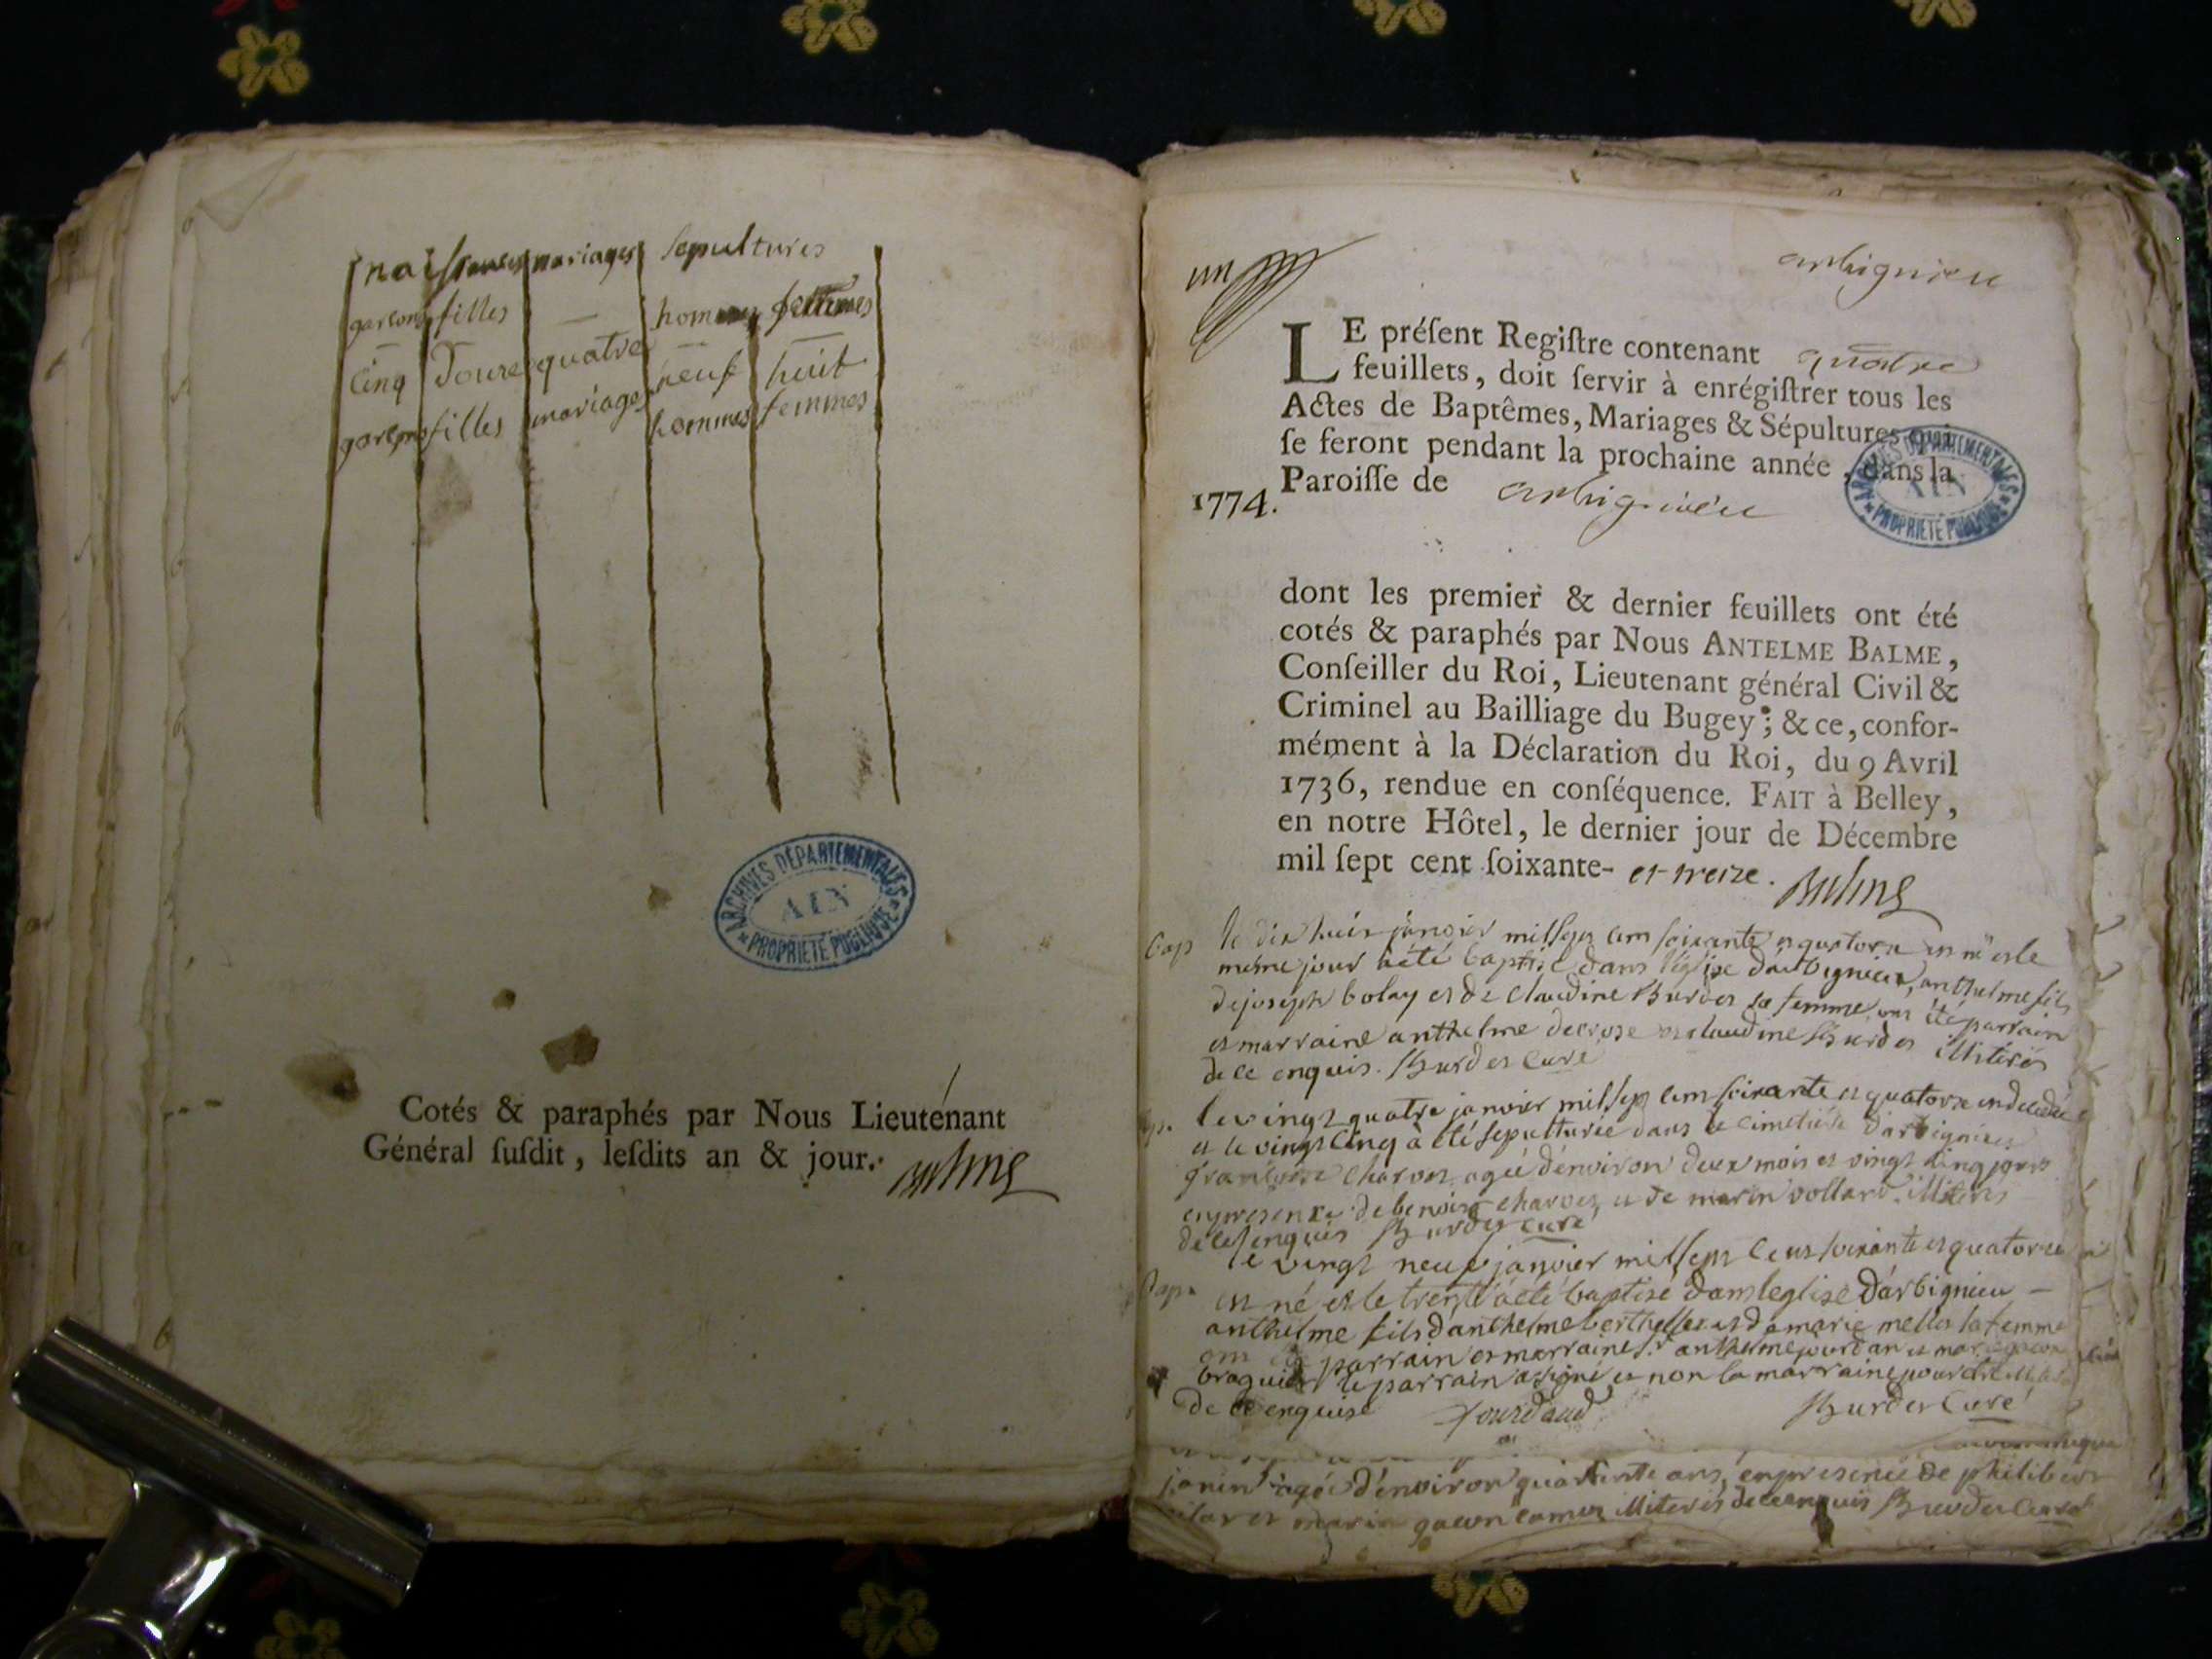 naissances mariages sepultures
garcons filles — hommes femmes
Cinq Douze quatre neuf huit
garcons filles mariages hommes femmes
ARCHIVES DÉPARTEMENTALES
AIN
* PROPRIÉTÉ PUBLIQUE *
Cotés & paraphés par Nous Lieutenant
Général ſuſdit, leſdits an & jour. Balme
un
arbignieu
LE préſent Regiſtre contenant quatre
feuillets, doit ſervir à enrégiſtrer tous les
Actes de Baptêmes, Mariages & Sépultures qui
ſe feront pendant la prochaine année, dans la
Paroiſſe de arbignieu
1774.
ARCHIVES DÉPARTEMENTALES
AIN
* PROPRIÉTÉ PUBLIQUE *
dont les premier & dernier feuillets ont été
cotés & paraphés par Nous ANTELME BALME,
Conſeiller du Roi, Lieutenant général Civil &
Criminel au Bailliage du Bugey; & ce, confor-
mément à la Déclaration du Roi, du 9 Avril
1736, rendue en conſéquence. FAIT à Belley,
en notre Hôtel, le dernier jour de Décembre
mil ſept cent ſoixante- et treize. Balme
Bap le dix huit janvier mil sept cent soixante et quatorze est né et le
même jour a été baptisé dans l'église d'arbignieu, anthelme fils
de joseph bolay et de claudine Burdet sa femme ont été parrain
et marraine anthelme decroze et claudine Burdet illiterés
de ce enquis. Burdet Curé
le vingt quatre janvier mil sept cent soixante et quatorze est decedée
et le vingt cinq a été sepulturée dans le cimetière d'arbignieu
françoise charvet agée d'environ deux mois et vingt cinq jours
en presence de benoist charvet et de marin vollard illiterés
de ce enquis Burdet curé
le vingt neuf janvier mil sept cent soixante et quatorze
Bap. est né et le trente a été baptisé dans l'eglise d'arbignieu —
anthelme fils d'anthelme berthellet et de marie mellet sa femme
ont été parrain et marraine anthelme jourdan et marie
braguier le parrain a signé et non la marraine pour être
de ce enquise Jourdand Burdet Curé
janin agé d'environ quarante ans, en presence de philibert
et marin gacon camus illiterés de ce enquis Burdet Curé